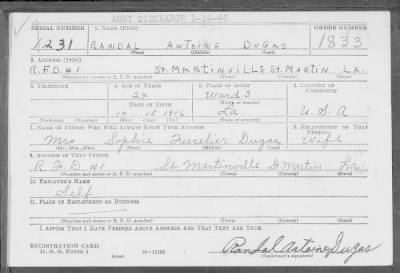 ARMY DISCHARGE 1-14-46
SERIAL NUMBER 1. NAME (Print) ORDER NUMBER
1231 RANDAL ANTOINE DUGAS 1833
(First) (Middle) (Last)
2. ADDRESS (Print)
R.F.D. #1 St. MARTINVILLE St. MARTIN LA.
(Number and street or R. F. D. number) (Town) (County) (State)
3. TELEPHONE 4. AGE IN YEARS 5. PLACE OF BIRTH 6. COUNTRY OF CITIZENSHIP
24 Ward 3
DATE OF BIRTH (Town or county)
10 18 1916 La U.S.A
(Exchange) (Number) (Mo.) (Day) (Yr.) (State or country)
7. NAME OF PERSON WHO WILL ALWAYS KNOW YOUR ADDRESS 8. RELATIONSHIP OF THAT PERSON
Mrs. Sophie Fuselier Dugas Wife
(Mr., Mrs., Miss) (First) (Middle) (Last)
9. ADDRESS OF THAT PERSON
R.F.D #1 St. Martinville St. Martin La.
(Number and street or R. F. D. number) (Town) (County) (State)
10. EMPLOYER'S NAME
Self
11. PLACE OF EMPLOYMENT OR BUSINESS
(Number and street or R. F. D. number) (Town) (County) (State)
I AFFIRM THAT I HAVE VERIFIED ABOVE ANSWERS AND THAT THEY ARE TRUE.
REGISTRATION CARD
D. S. S. Form 1 (over) Randal Antoine Dugas
(Registrant's signature)